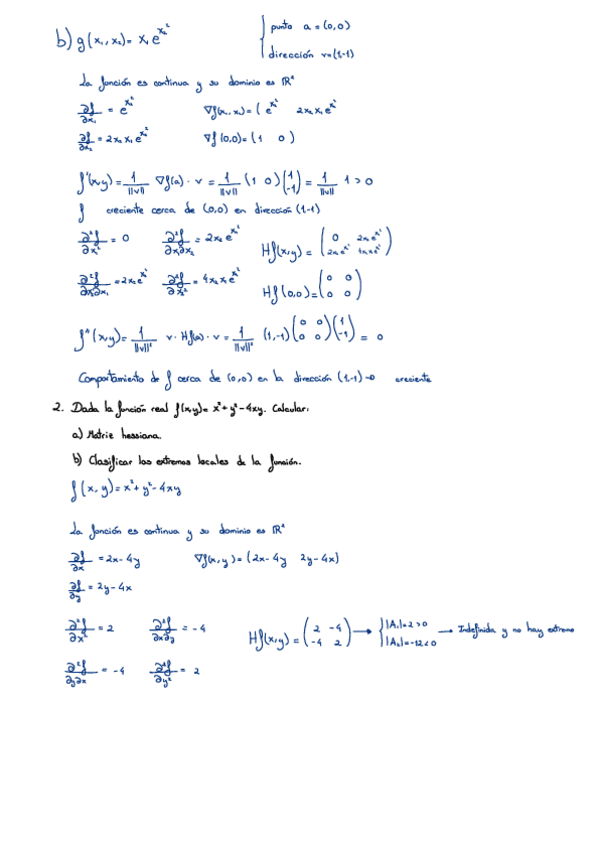 b) g(x₁,x₂)= x₁e^{x₂²} { punto a = (0,0)
dirección v=(1,-1)
La función es continua y su dominio es ℝ²
∂f/∂x₁ = e^{x₂²} ∇f(x₁,x₂)=( e^{x₂²} 2x₂x₁e^{x₂²}
∂f/∂x₂ = 2x₂x₁e^{x₂²} ∇f(0,0)=(1 0)
f'(x,y)= 1/||v|| ∇f(a)·v = 1/||v|| (1 0)(1 -1) = 1/||v|| 1>0
f creciente cerca de (0,0) en dirección (1,-1)
∂²f/∂x₁² = 0 ∂²f/∂x₁∂x₂ = 2x₂e^{x₂²} Hf(x,y) = (0 2x₂e^{x₂²} 2x₂e^{x₂²} 4x₂x₁e^{x₂²})
∂²f/∂x₂∂x₁ = 2x₂e^{x₂²} ∂²f/∂x₂² = 4x₂x₁e^{x₂²} Hf(0,0)=(0 0 0 0)
f''(x,y)= 1/||v||² v·Hf(a)·v = 1/||v||² (1,-1)(0 0 0 0)(1 -1) = 0
Comportamiento de f cerca de (0,0) en la dirección (1,-1) → creciente
2. Dada la función real f(x,y)= x²+y²-4xy. Calcular:
a) Matriz hessiana.
b) Clasificar los extremos locales de la función.
f(x,y)=x²+y²-4xy
La función es continua y su dominio es ℝ²
∂f/∂x = 2x-4y ∇f(x,y)=(2x-4y 2y-4x)
∂f/∂y = 2y-4x
∂²f/∂x² = 2 ∂²f/∂x∂y = -4 Hf(x,y)=(2 -4 -4 2) → { |A₁|=2>0 |A₂|=-12<0 → Indefinida y no hay extremo
∂²f/∂y∂x = -4 ∂²f/∂y² = 2